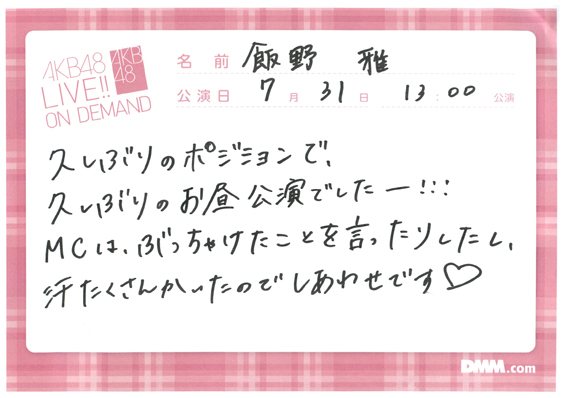 AKB48
LIVE!!
ON DEMAND
AKB
48
名前 飯野 雅
公演日 7月31日 13:00 公演
久しぶりのポジションで、
久しぶりのお昼公演でしたー!!!
MCは、ぶっちゃけたことを言ったりしたし、
汗たくさんかいたのでしあわせです♡
DMM.com